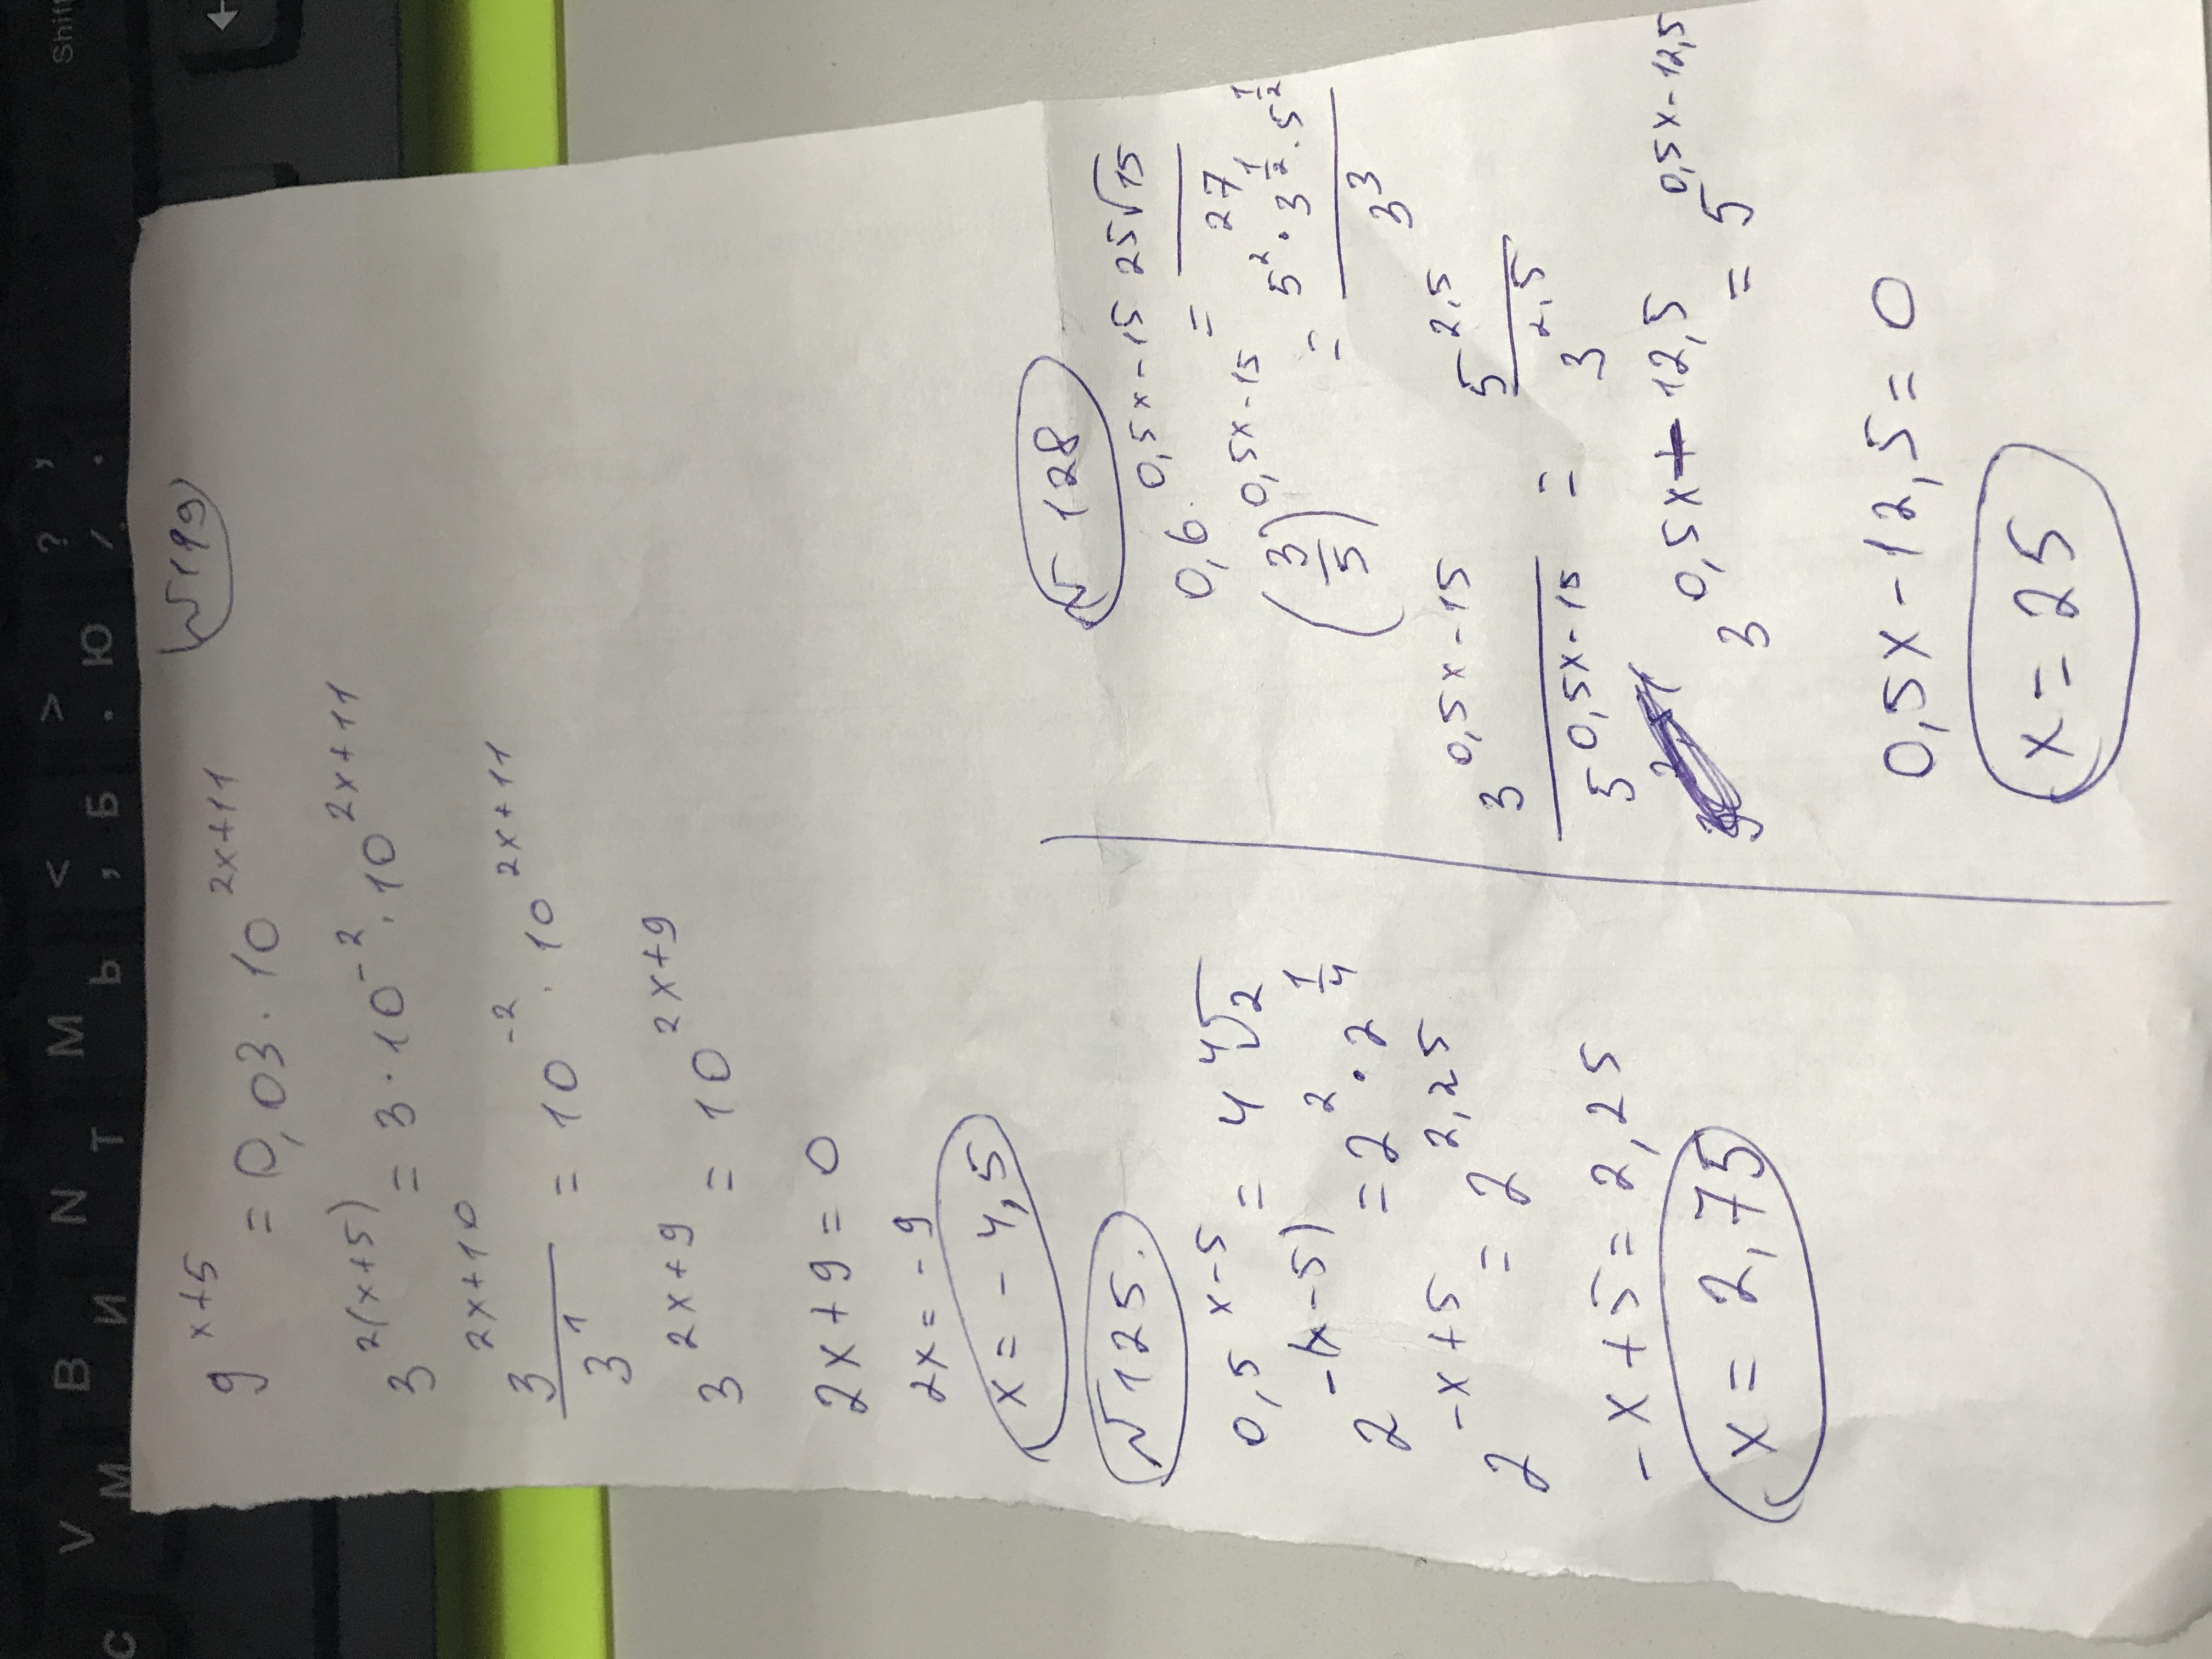 Shift
V B N M < > ?
С М И Т Ь , Б . Ю / . ,
№119
9^(x+5) = 0,03 · 10^(2x+11)
3^(2(x+5)) = 3 · 10^(-2) · 10^(2x+11)
3^(2x+10) / 3^1 = 10^(-2) · 10^(2x+11)
3^(2x+9) = 10^(2x+9)
2x+9=0
2x=-9
x=-4,5
№125.
0,5^(x-5) = 4 ∜2
2^(-(x-5)) = 2^2 · 2^(1/4)
2^(-x+5) = 2^(2,25)
-x+5=2,25
x=2,75
№128
0,6^(0,5x-15) = 25√15 / 27
(3/5)^(0,5x-15) = 5^2 · 3^(1/2) · 5^(1/2) / 3^3
3^(0,5x-15) / 5^(0,5x-15) = 5^(2,5) / 3^(2,5)
3^(0,5x-12,5) = 5^(0,5x-12,5)
0,5x-12,5=0
x=25